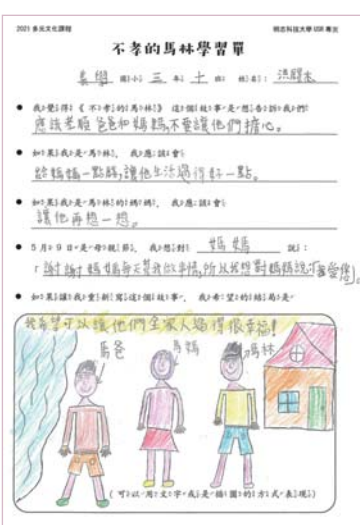 2021 多元文化課程 明志科技大學 USR 專案
不孝的馬林學習單
國小 三 年 十 班 姓名:
● 我覺得《不孝的馬林》這個故事是想告訴我們:
應該孝順爸爸和媽媽,不要讓他們擔心。
● 如果我是馬林, 我應該會
給媽媽一點錢,讓他生活過得好一點。
● 如果我是馬林的媽媽, 我應該會
讓他再想一想。
● 5 月 9 日是母親節, 我想對 媽媽 說:
「謝謝媽媽每天幫我做事情,所以我想對媽媽說:「我愛您」。
● 如果讓我重新寫這個故事, 我希望的結局是
我希望可以讓他們全家人過得很幸福!
馬爸 馬媽 馬林
( 可以用文字或是插圖的方式表現 )